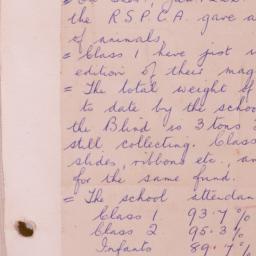 the R.S.P.C.A. gave a
of animals.
= Class 1 have just
edition of their mag
= The total weight of
to date by the schoo
the Blind is 3 tons
still collecting. Class
slides, ribbons etc., an
for the same fund.
= The school attendan
Class 1 93.7%
Class 2 95.3%
Infants 89.7%